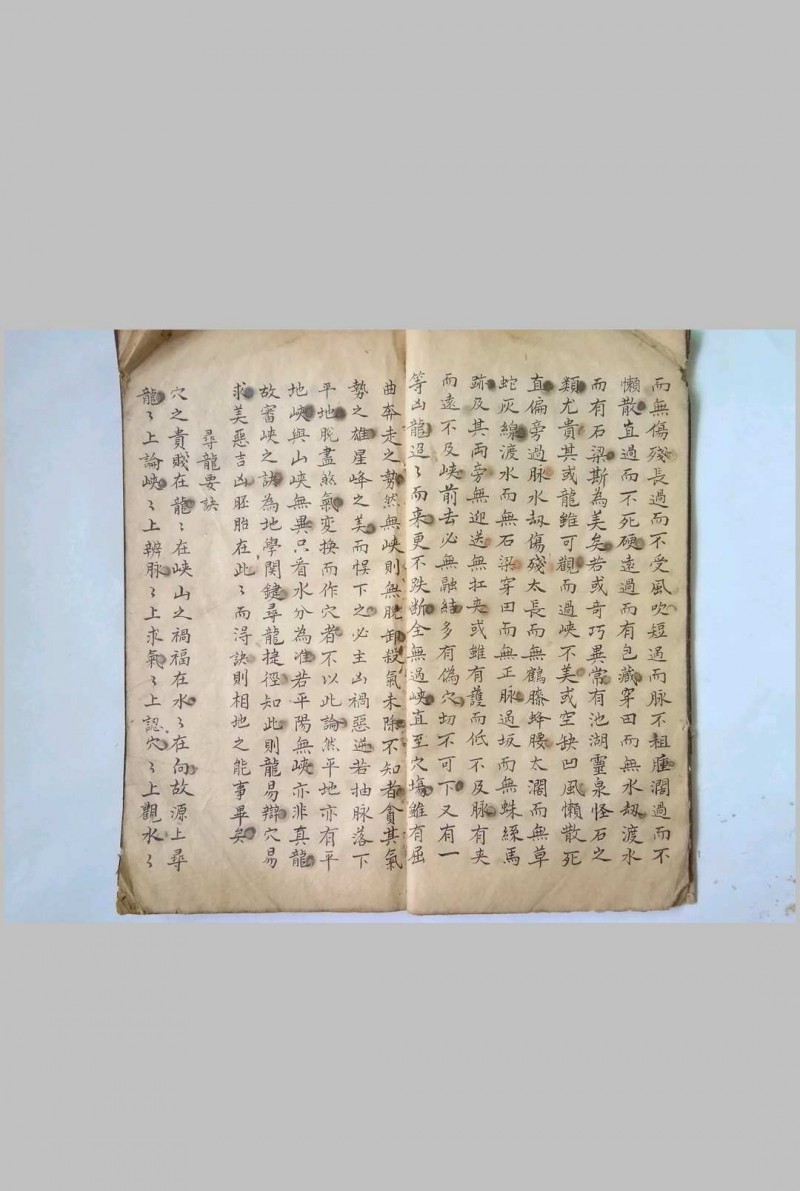 而無傷殘長過而不受風吹短過而脉不粗腫濶過而不
懶散直過而不死硬遠過而有包藏穿田而無水刼渡水
而有石梁斯為美矣若或竒巧異常有池湖靈泉怪石之
類尤貴其或龍雖可觀而過峽不美或空缺凹風懶散死
直偏旁過脉水刼傷殘太長而無鶴膝蜂腰太濶而無草
蛇灰線渡水而無石梁穿田而無正脉過坂而無蛛絲馬
跡及其両旁無迎送無扛夾或雖有護而低不及脉有夹
而遠不及峽前去必無融結多有偽穴切不可下又有一
等凶龍迢〻而来更不跌断全無過峽直至穴塲雖有屈
曲奔走之勢然無峽則無脫卸殺氣未除不知者貪其氣
勢之雄星峰之美而悮下之必主凶禍惡逆若抽脉落下
平地脫盡煞氣变換而作穴者不以此論然平地亦有平
地峽與山峽無異只看水分為准若平陽無峽亦非真龍
故審峽之訣為地學関鍵尋龍捷徑知此則龍易辯穴易
求美惡吉凶胚胎在此〻而淂訣則相地之能事畢矣
尋龍要訣
穴之貴賤在龍〻在峽山之禍福在水〻在向故源上尋
龍〻上論峽〻上辨脉〻上求氣〻上認穴〻上觀水〻